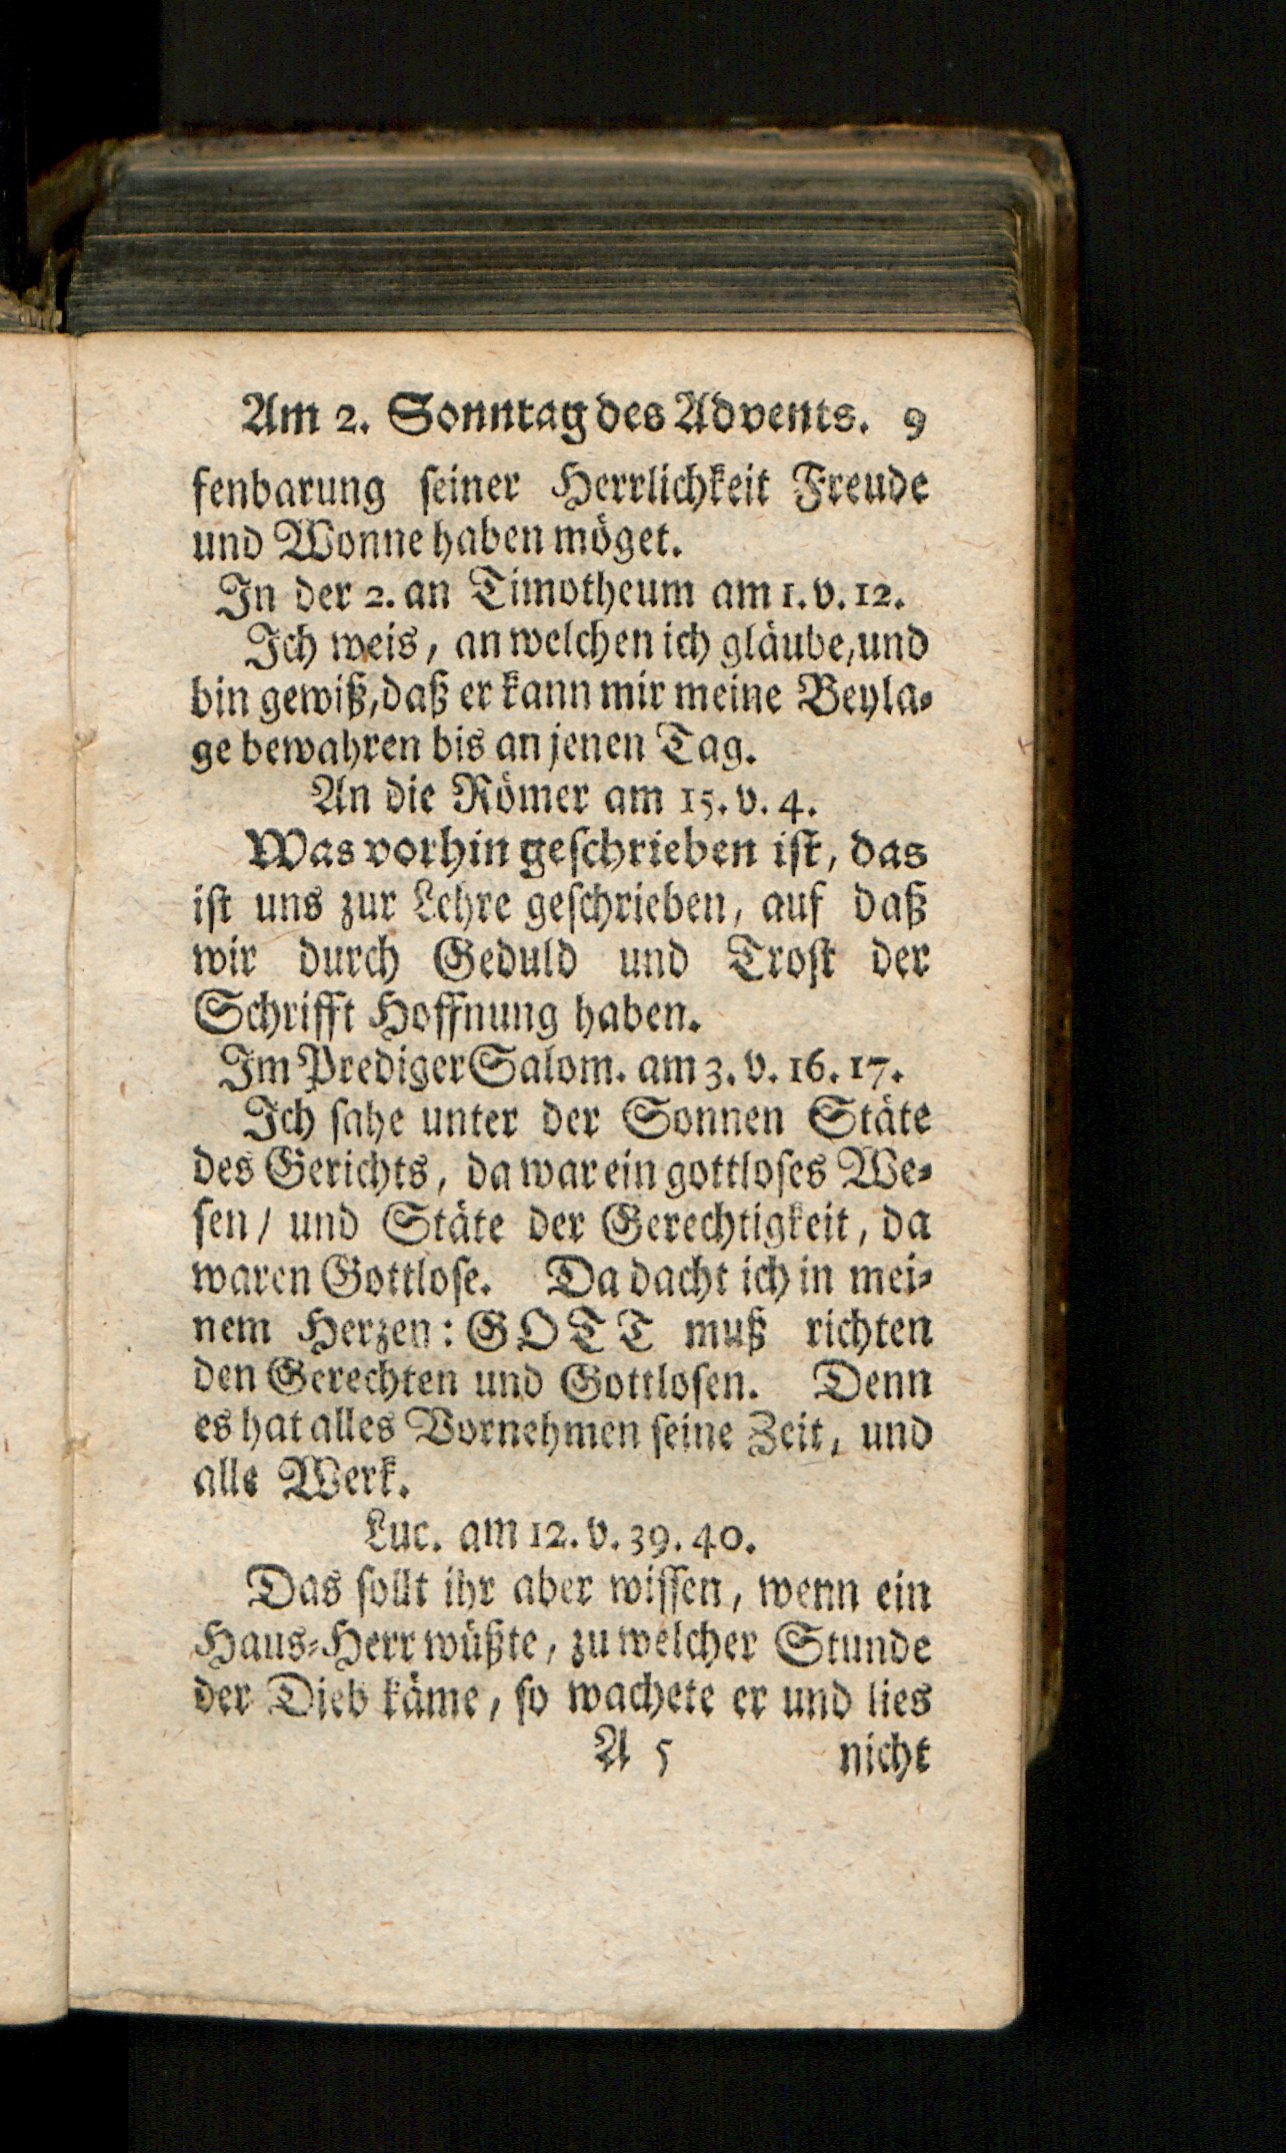 Am 2. Sonntag des Advents. 9
fenbarung seiner Herrlichkeit Freude
und Wonne haben möget.
In der 2. an Timotheum am 1. v. 12.
Ich weis, an welchen ich gläube, und
bin gewiß, daß er kann mir meine Beyla-
ge bewahren bis an jenen Tag.
An die Römer am 15. v. 4.
Was vorhin geschrieben ist, das
ist uns zur Lehre geschrieben, auf daß
wir durch Geduld und Trost der
Schrifft Hoffnung haben.
Im Prediger Salom. am 3. v. 16. 17.
Ich sahe unter der Sonnen Stäte
des Gerichts, da war ein gottloses We-
sen / und Stäte der Gerechtigkeit, da
waren Gottlose. Da dacht ich in mei-
nem Herzen: GOTT muß richten
den Gerechten und Gottlosen. Denn
es hat alles Vornehmen seine Zeit, und
alle Werk.
Luc. am 12. v. 39. 40.
Das sollt ihr aber wissen, wenn ein
Haus-Herr wüßte, zu welcher Stunde
der Dieb käme, so wachete er und lies
A 5 nicht